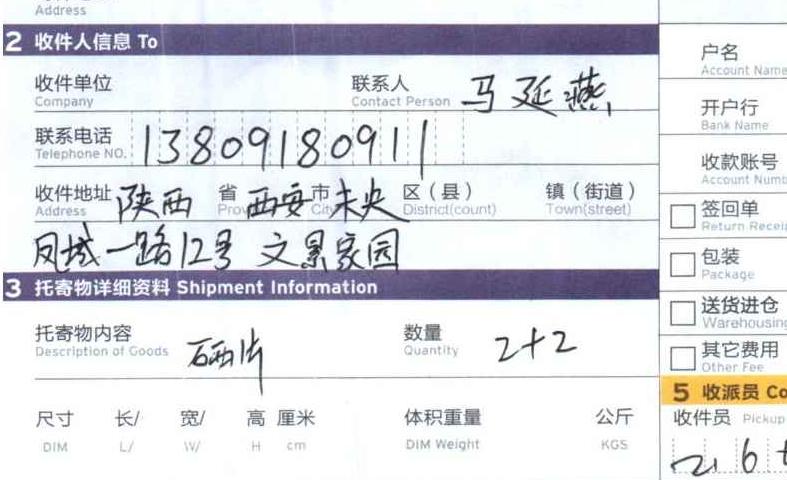 Address
2 收件人信息 To
收件单位 联系人 马延燕
Company Contact Person
联系电话 13809180911
Telephone NO.
收件地址 陕西 省 西安 市 未央 区（县） 镇（街道）
Address City District(count) Town(street)
凤城一路12号 文景家园
3 托寄物详细资料 Shipment Information
托寄物内容 硒片 数量 2+2
Description of Goods Quantity
尺寸 长/ 宽/ 高 厘米 体积重量 公斤
DIM L/ W/ H cm DIM Weight KGS
户名
Account Name
开户行
Bank Name
收款账号
Account Numb
签回单
Return Recei
包装
Package
送货进仓
Warehousing
其它费用
Other Fee
5 收派员 Co
收件员 Pickup
2 6